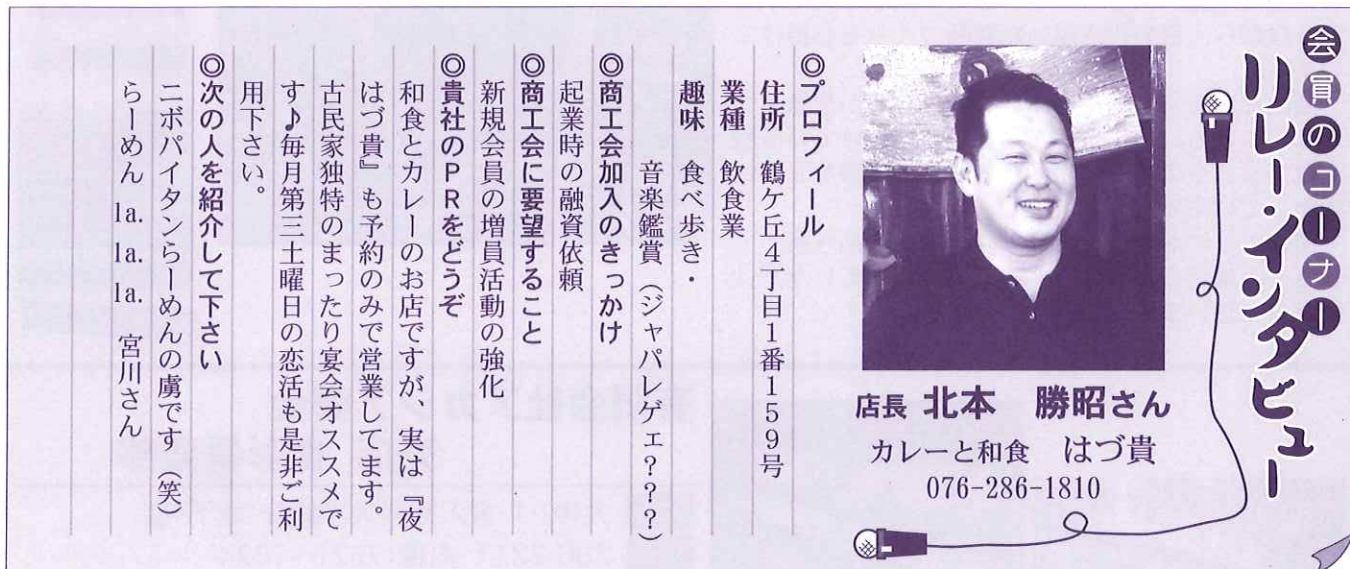 会員のコーナー
リレー・インタビュー
店長 北本 勝昭さん
カレーと和食 はづ貴
076-286-1810
◎プロフィール
住所 鶴ケ丘4丁目1番159号
業種 飲食業
趣味 食べ歩き・
音楽鑑賞（ジャパレゲェ？？？）
◎商工会加入のきっかけ
起業時の融資依頼
◎商工会に要望すること
新規会員の増員活動の強化
◎貴社のＰＲをどうぞ
和食とカレーのお店ですが、実は『夜
はづ貴』も予約のみで営業してます。
古民家独特のまったり宴会オススメで
す♪毎月第三土曜日の恋活も是非ご利
用下さい。
◎次の人を紹介して下さい
ニボパイタンらーめんの虜です（笑）
らーめん la. la. la. 宮川さん